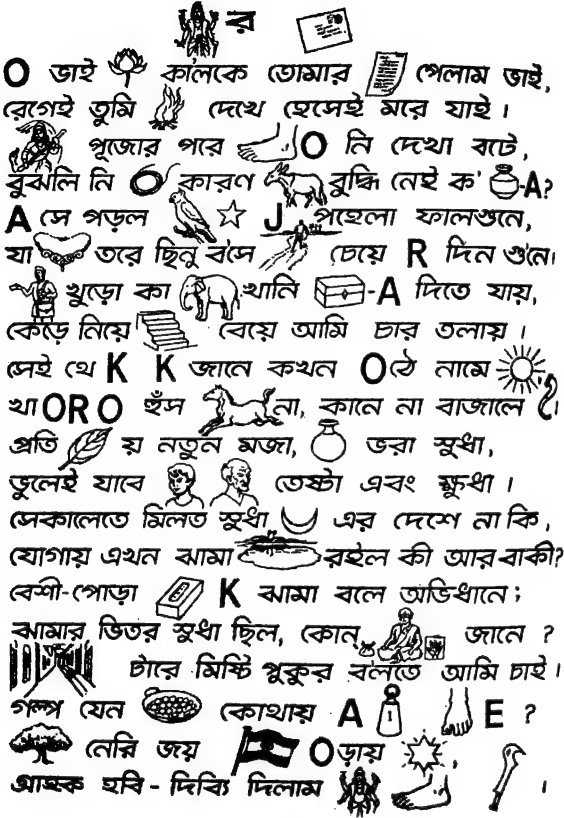 র
O ভাই কালকে তোমার পেলাম ভাই,
রেগেই তুমি দেখে হেসেই মরে যাই।
পূজোর পরে O নি দেখা বটে,
বুঝলি নি কারণ বুদ্ধি নেই ক' -A?
A সে পড়ল J পহেলা ফালগুনে,
যা তরে ছিনু ব'সে চেয়ে R দিন গুনে।
খুড়ো কা খানি -A দিতে যায়,
কেড়ে নিয়ে বেয়ে আমি চার তলায়।
সেই থে K K জানে কখন O ঠে নামে
খা ORO হুঁস না, কানে না বাজালে।
প্রতি য় নতুন মজা, ভরা সুধা,
ভুলেই যাবে তেষ্টা এবং ক্ষুধা।
সেকালেতে মিলত সুধা এর দেশে না কি,
যোগায় এখন ঝামা রইল কী আর বাকী?
বেশী-পোড়া K ঝামা বলে অভিধানে;
ঝামার ভিতর সুধা ছিল, কোন জানে?
টারে মিষ্টি পুকুর ব'লতে আমি চাই।
গল্প যেন কোথায় A E ?
নেরি জয় O ড়ায় ,
আহ্‌ক হবি - দিব্যি দিলাম ।